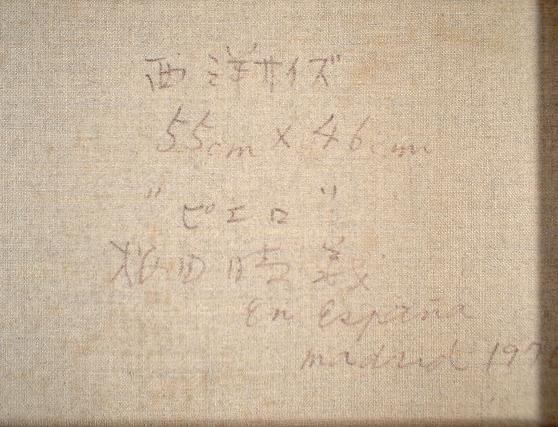 西洋サイズ
55cm x 46cm
"ピエロ"
田晴義
en España
madrid 197